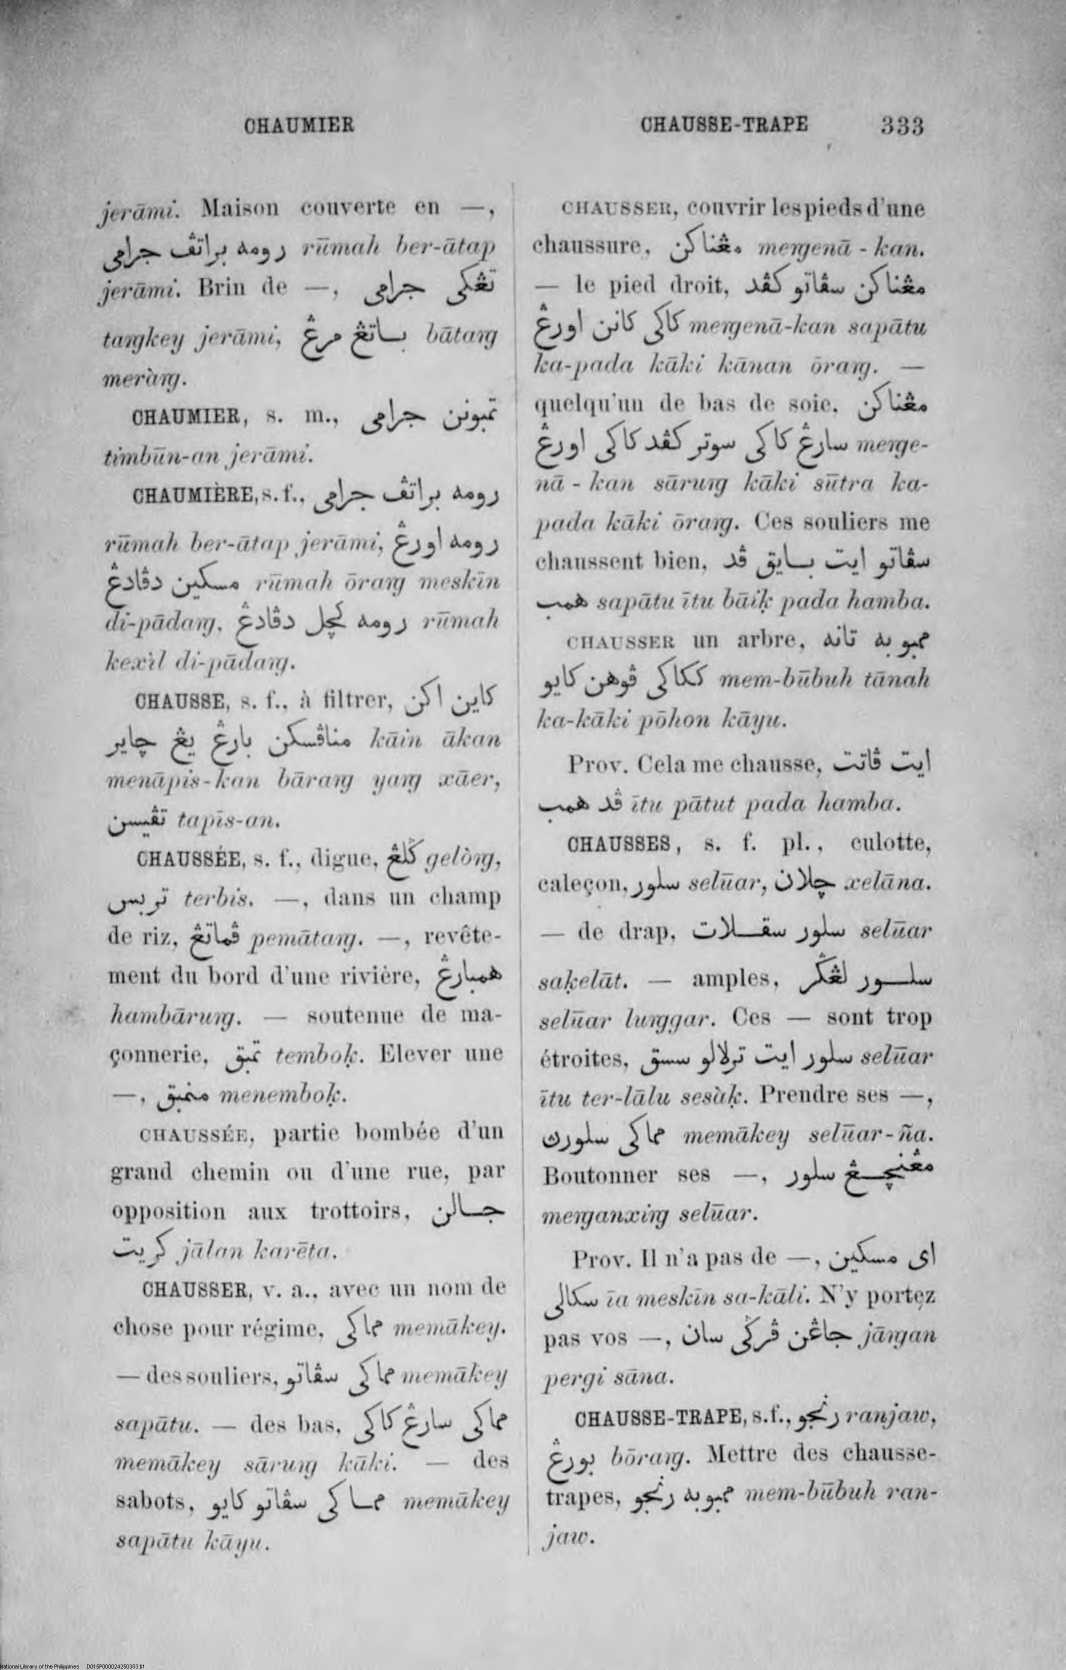 CHAUMIER
CHAUSSE-TRAPE 333
jerāmi. Maison couverte en —,
رومه براتڤ جرامى rūmah ber-ātap
jerāmi. Brin de —, تڠكى جرامى
taŋkey jerāmi, باتڠ مرڠ bātaŋ
meràŋ.
CHAUMIER, s. m., تمبونن جرامى
timbūn-an jerāmi.
CHAUMIÈRE, s. f., رومه براتڤ جرامى
rūmah ber-ātap jerāmi, رومه اورڠ
مسكين دڤادڠ rūmah ōraŋ meskīn
di-pādaŋ, رومه كچل دڤادڠ rūmah
kexìl di-pādaŋ.
CHAUSSE, s. f., à filtrer, كاين اكن
مناڤسكن بارڠ يڠ چاير kāin ākan
menāpis-kan bāraŋ yaŋ xāer,
تڤيسن tapīs-an.
CHAUSSÉE, s. f., digue, ݢلڠ gelòŋ,
تربس terbis. —, dans un champ
de riz, ڤماتڠ pemātaŋ. —, revête-
ment du bord d'une rivière, همبارڠ
hambāruŋ. — soutenue de ma-
çonnerie, تمبق temboḳ. Elever une
—, منمبق menemboḳ.
CHAUSSÉE, partie bombée d'un
grand chemin ou d'une rue, par
opposition aux trottoirs, جالن
كريت jālan karēta.
CHAUSSER, v. a., avec un nom de
chose pour régime, مماكى memākey.
— des souliers, مماكى سڤاتو memākey
sapātu. — des bas, مماكى سارڠ كاكى
memākey sāruŋ kāki. — des
sabots, مماكى سڤاتو كايو memākey
sapātu kāyu.
CHAUSSER, couvrir les pieds d'une
chaussure, مڠناكن meŋenā-kan.
— le pied droit, مڠناكن سڤاتو كڤد
كاكى كانن اورڠ meŋenā-kan sapātu
ka-pada kāki kānan ōraŋ. —
quelqu'un de bas de soie, مڠناكن
سارڠ كاكى سوتر كڤد كاكى اورڠ meŋe-
nā-kan sāruŋ kāki sūtra ka-
pada kāki ōraŋ. Ces souliers me
chaussent bien, سڤاتو ايت بايق ڤد
همب sapātu ītu bāiḳ pada hamba.
CHAUSSER un arbre, ممبوبه تانه
ككاكى ڤوهن كايو mem-būbuh tānah
ka-kāki pōhon kāyu.
Prov. Cela me chausse, ايت ڤاتت
ڤد همب ītu pātut pada hamba.
CHAUSSES, s. f. pl., culotte,
caleçon, سلور selūar, چلان xelāna.
— de drap, سلور سقلات selūar
saḳelāt. — amples, سلور لڠݢر
selūar luŋgar. Ces — sont trop
étroites, سلور ايت ترلالو سسق selūar
ītu ter-lālu sesàḳ. Prendre ses —,
مماكى سلورڽ memākey selūar-ña.
Boutonner ses —, مڠنچڠ سلور
meŋanxiŋ selūar.
Prov. Il n'a pas de —, اى مسكين
سكالى īa meskīn sa-kāli. N'y portez
pas vos —, جاڠن ڤرݢى سان jāŋan
pergi sāna.
CHAUSSE-TRAPE, s. f., رنجو ranjaw,
بورڠ bōraŋ. Mettre des chausse-
trapes, ممبوبه رنجو mem-būbuh ran-
jaw.
National Library of the Philippines